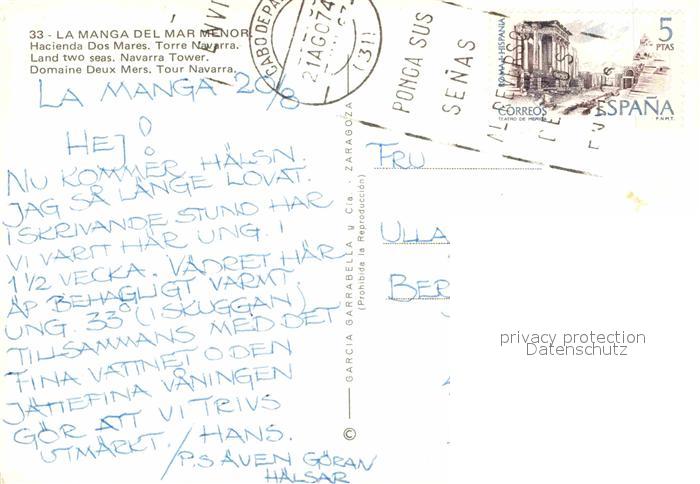 33 - LA MANGA DEL MAR MENOR
Hacienda Dos Mares. Torre Navarra.
Land two seas. Navarra Tower.
Domaine Deux Mers. Tour Navarra.
LA MANGA 20/8
HEJ!
NU KOMMER HÄLSN.
JAG SÅ LÄNGE LOVAT.
I SKRIVANDE STUND HAR
VI VARIT HÄR UNG. 1
1 1/2 VECKA. VÄDRET HÄR
ÄR BEHAGLIGT VARMT.
UNG. 33° (I SKUGGAN)
TILLSAMMANS MED DET
FINA VATTNET O DEN
JÄTTEFINA VÅNINGEN
GÖR ATT VI TRIVS
UTMÄRKT. / HANS.
P.S ÄVEN GÖRAN
HÄLSAR
© GARCIA GARRABELLA y Cía. - ZARAGOZA
(Prohibida la Reproducción)
CABO DE PA
21 AGO 74
(31)
PONGA SUS
SEÑAS
AL DORSO
ROMA HISPANIA
5
PTAS
CORREOS
ESPAÑA
TEATRO DE MERIDA
F.N.M.T.
FRU
ULLA
BER
privacy protection
Datenschutz